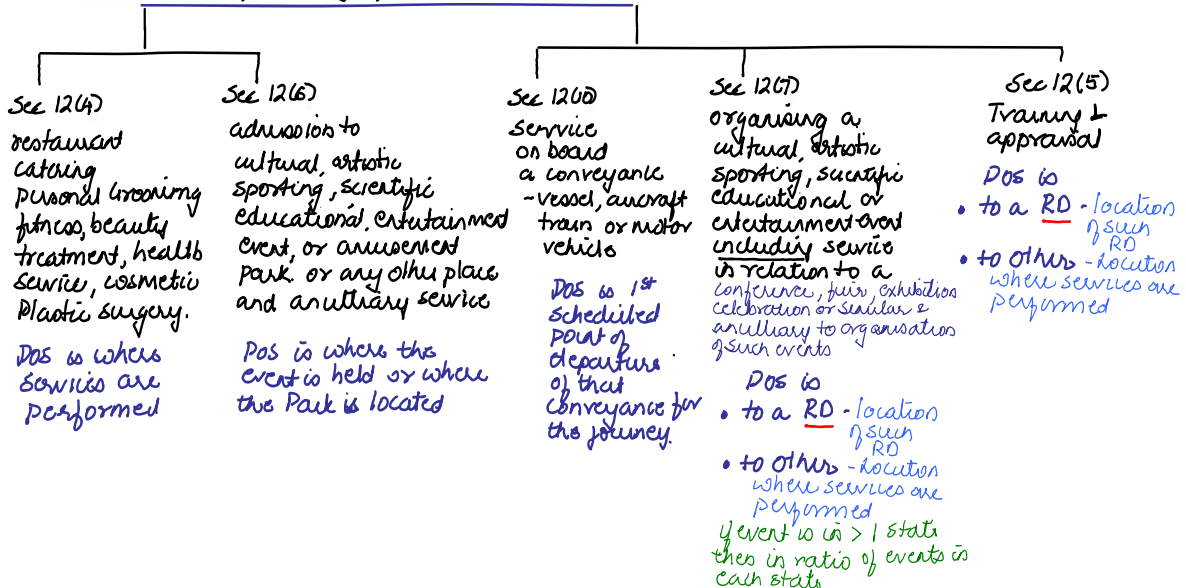 Sec 12(4)
restaurant
catering
personal Grooming
fitness, beauty
treatment, health
service, cosmetic
Plastic surgery.
POS is where
services are
performed
Sec 12(6)
admission to
cultural, artistic
sporting, scientific
educational, entertainment
event, or amusement
park or any other place
and ancillary service
POS is where the
event is held or where
the Park is located
Sec 12(10)
service
on board
a conveyance
- vessel, aircraft
train or motor
vehicle
POS is 1st
scheduled
point of
departure
of that
conveyance for
the journey.
Sec 12(7)
organising a
cultural, artistic
sporting, scientific
educational or
entertainment event
including service
in relation to a
conference, fair, exhibition
celebration or similar &
ancilliary to organisation
of such events
POS is
• to a RD - location
of such
RD
• to others - Location
where services are
performed
if event is in > 1 state
then in ratio of events in
each state
Sec 12(5)
Training &
appraisal
POS is
• to a RD - location
of such
RD
• to others - Location
where services are
performed